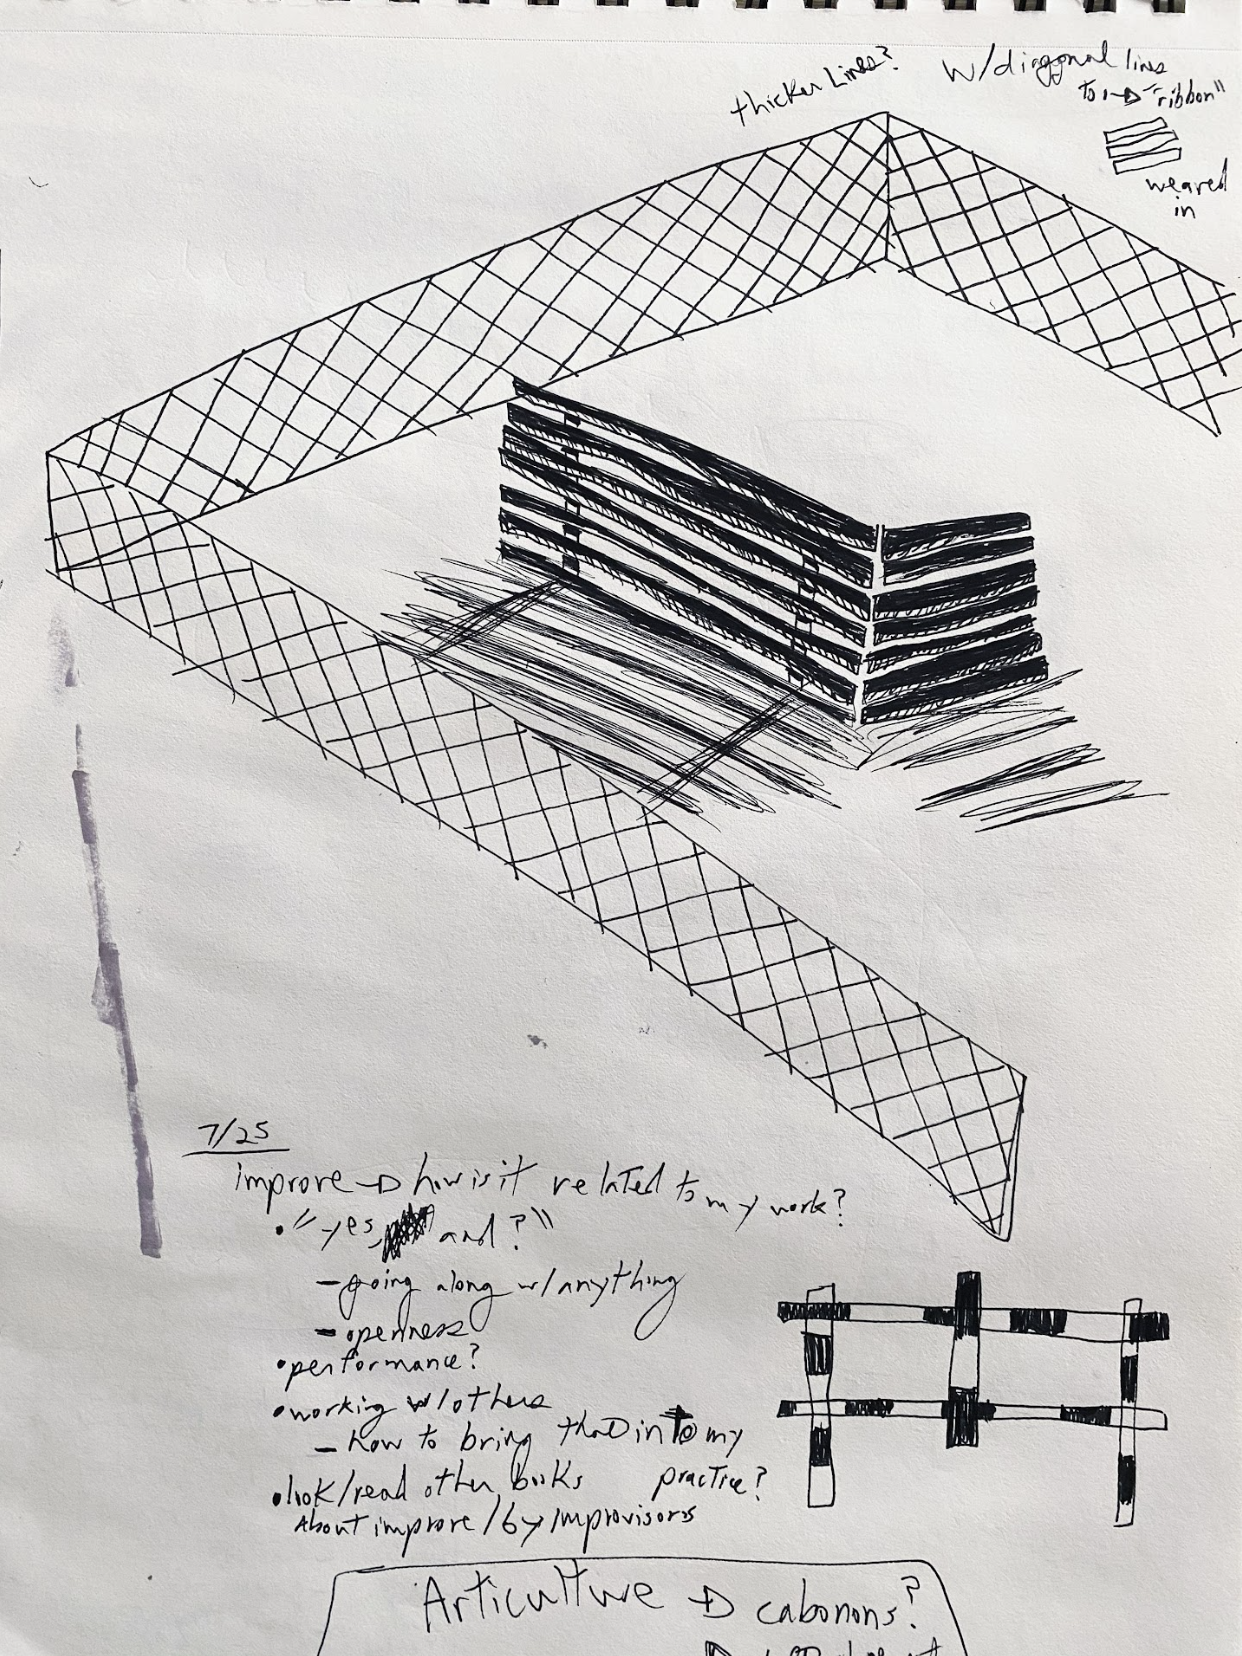 thicker Lines?
w/diagonal lines
to → "ribbon"
weaved
in
7/25
improve → how is it related to my work?
• "yes, and?"
- going along w/anything
- openness
• performance?
• working w/others
- how to bring that into my
practice?
• look/read other books
About improve/by improvisors
Articulture → cabonons?